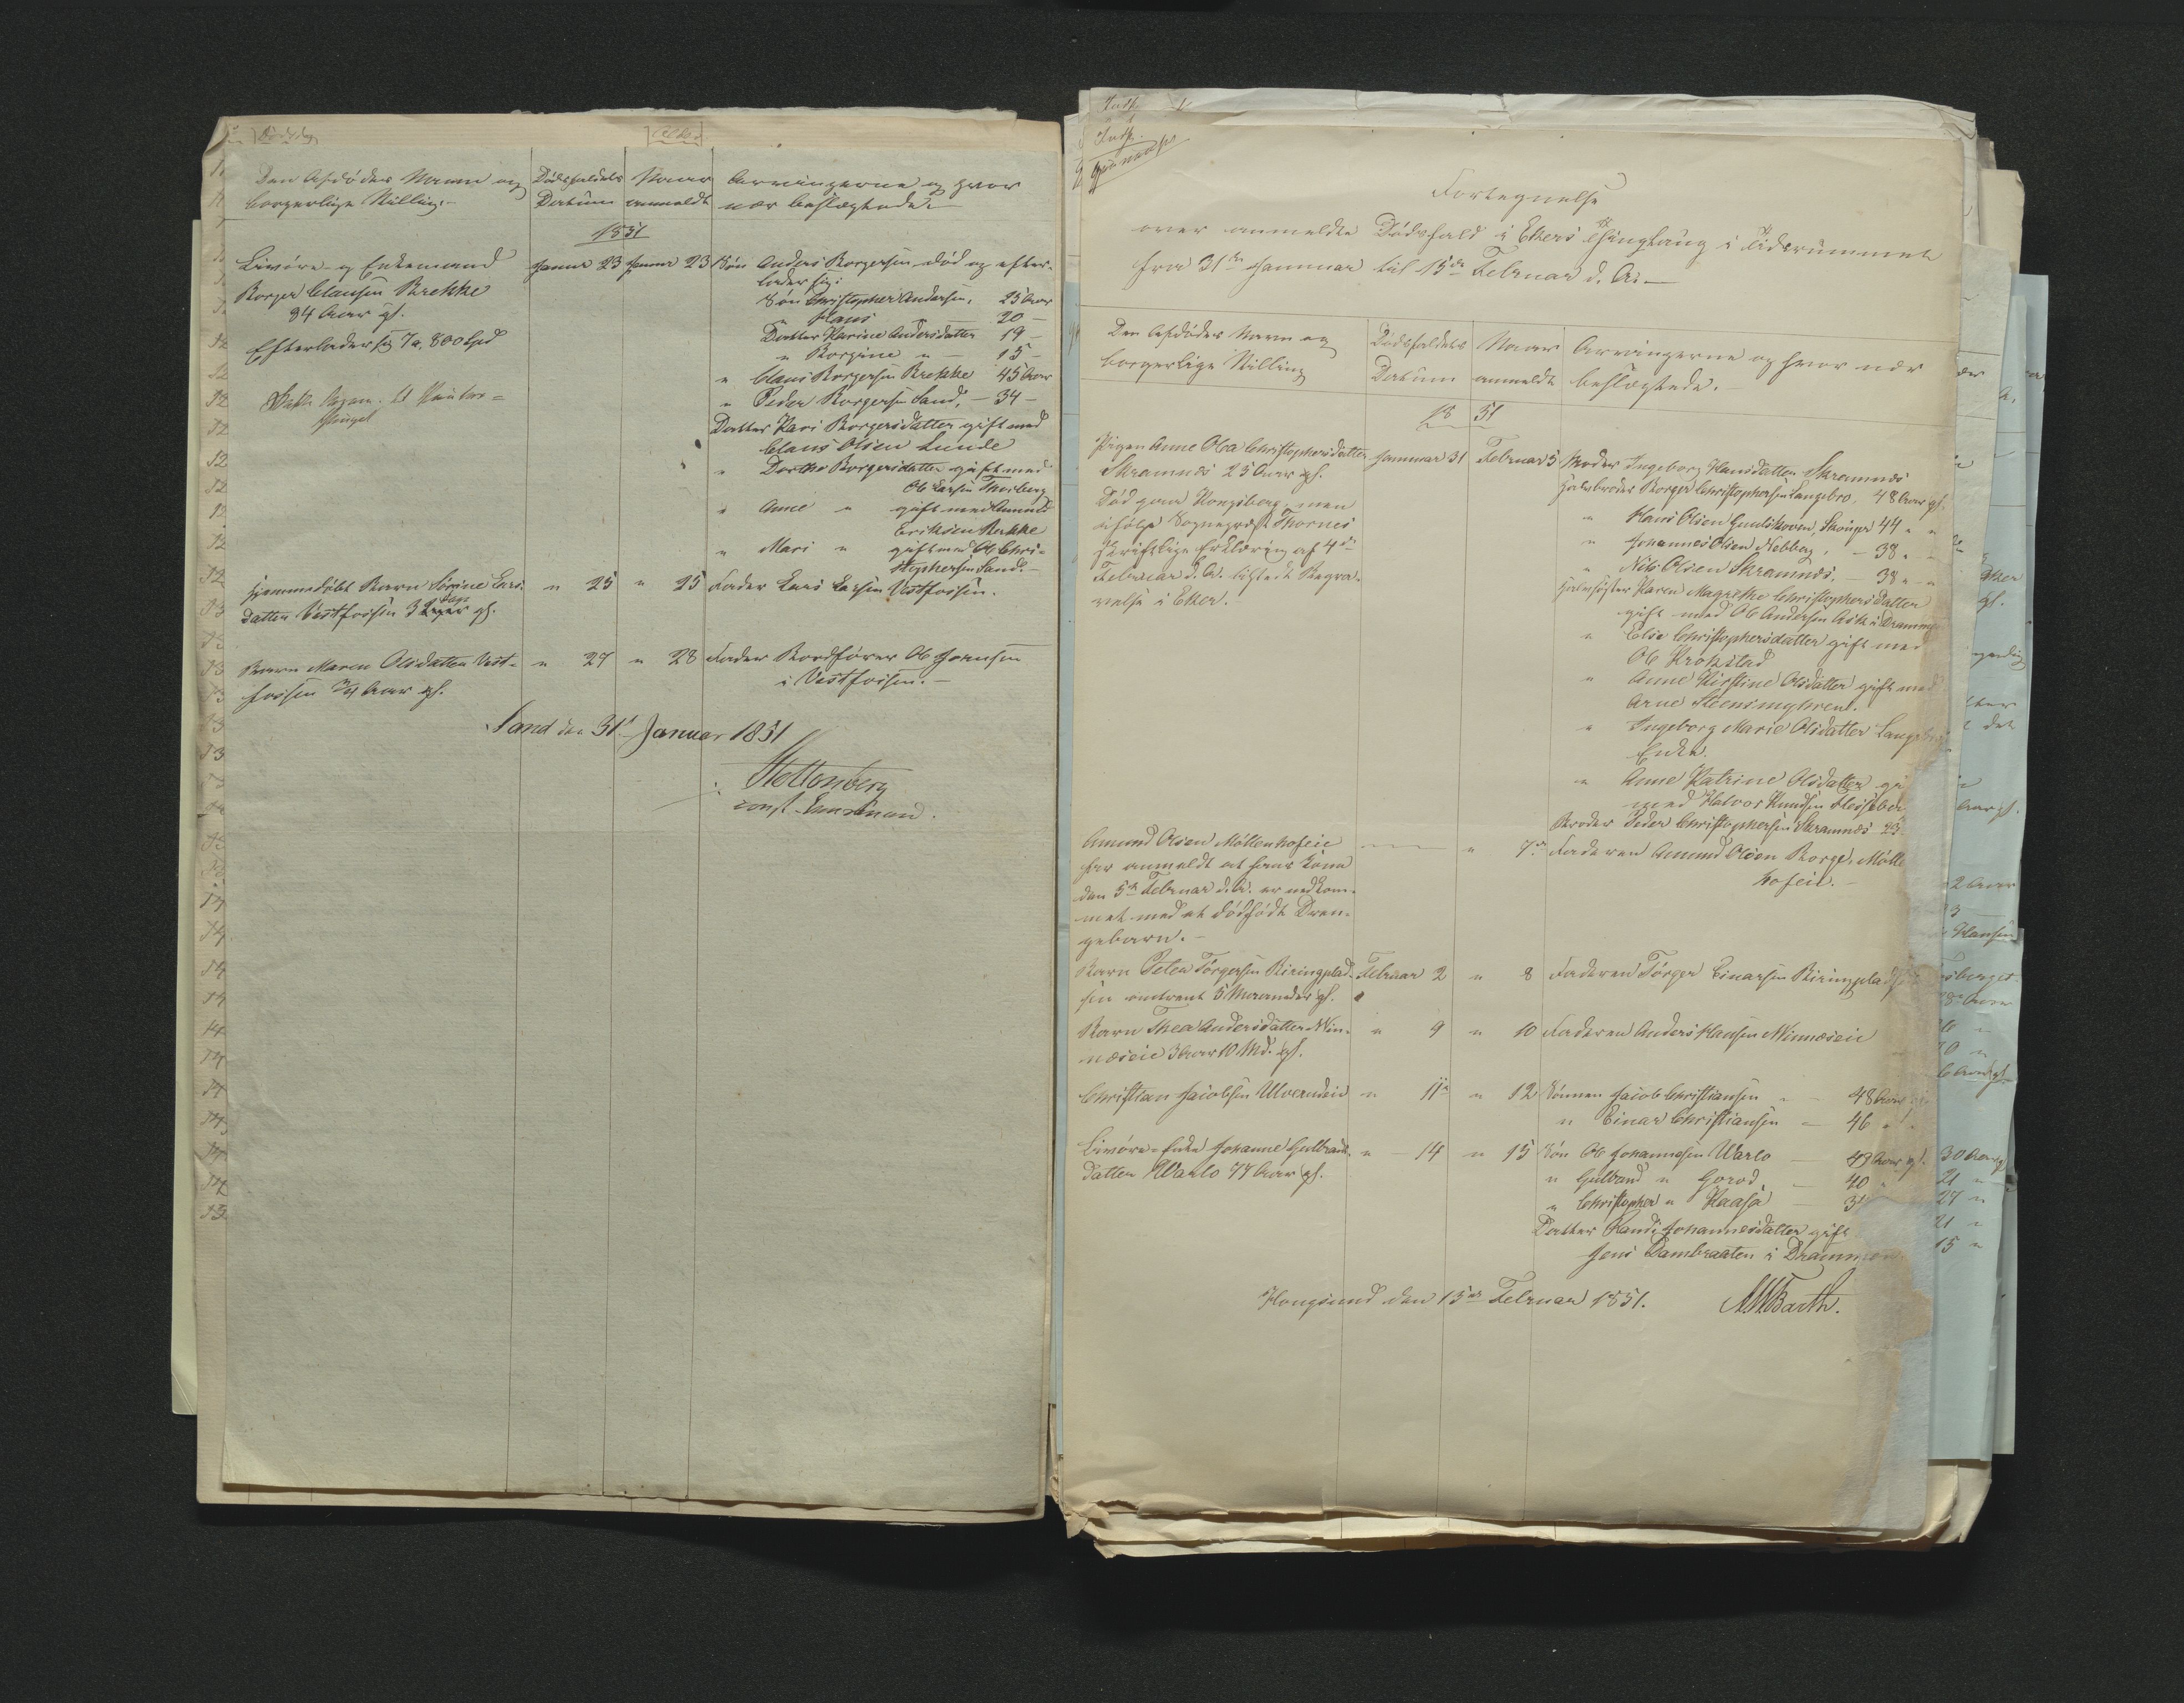 Den Afdødes Navn og
borgerlige Stilling.
Dødsfaldets
Datum
Naar
anmeldt
Arvingerne og hvor
nær beslægtede.
1851
Livøre- og Enkemand
Borger Clausen Brekke
84 Aar gl.
Efterlader sig
Januar 23 Januar 23
Søn Anders Borgersen død og efter-
lader sig:
Søn Christopher Andersen, 25 Aar
" Hans " — 20 —
Datter Karine Andersdatter 19 —
" Borgine " — 15 —
" Claus Borgersen Brekke 45 Aar
" Peder Borgersen Sand, — 34 —
Datter Kari Borgersdatter gift med
Claus Olsen Lunde
" Dorthe Borgersdatter gift med
Ole Larsen Thorberg
" Anne " gift med Amund
Eriksen Bakke
" Mari " gift med Ole Chri-
stophersen Sand.
Hjemmedøbt Barn Sørine Lars-
datter Vestfossen 3 Dage gl.
" 25 " 25 Fader Lars Larsen Vestfossen.
Barn Maren Olsdatter Vest-
fossen 3/4 Aar gl.
" 27 " 28 Fader Bordfører Ole Jonsen
i Vestfossen.
Sand den 31te Januar 1851
Stoltenberg
const. Lensmand.
Fortegnelse
over anmeldte Dødsfald i Ekers Thinglaug i Tidsrummet
fra 31te Januar til 15de Februar d. A.
Den Afdødes Navn og
borgerlige Stilling
Dødsfaldets
Datum
Naar
anmeldt
Arvingerne og hvor nær
beslægtede.
1851
Pigen Anne Olea Christophersdatter
Skramnæs 25 Aar gl.
Død paa Kongsberg, men
ifølge Sognepræst Thornes
skriftlige Erklæring af 4de
Februar d. A. tilstedt Begra-
velse i Eker.
Januar 31 Februar 5
Moder Ingeborg Hansdatter Skramnæs
Halvbroder Borger Christophersen Langebro, 48 Aar gl.
" Hans Olsen Gundhoven, Skouger 44 " "
" Johannes Olsen Hobberg, — 38 " "
" Nils Olsen Skramnæs, — 38 " "
Halvsøster Karen Magrethe Christophersdatter
gift med Ole Andersen Ask i Drammen
" Else Christophersdatter gift med
Ole Krokstad
" Anne Kirstine Olsdatter gift med
Arne Steensmyhren.
" Ingeborg Marie Olsdatter
Enke.
" Anne Katrine Olsdatter
med Halvor Knudsen
Broder Peder Christophersen Skramnæs 23
Amund Olsen Møllenhofeie
har anmeldt at hans Kone
den 5te Februar d. A. er nedkom-
met med et dødfødt Dren-
gebarn.
" 7de Faderen Amund Olsen Borge, Mølle
hofeie.
Barn Petea Törgersen Biringplad-
sen omtrent 5 Maaneder gl.
Februar 2 " 8 Faderen Törger Einarsen
Barn Thea Andersdatter Min-
næseie 3 Aar 10 Md. gl.
" 9 " 10 Faderen Anders Hansen Minnæseie
Christian Jacobsen Ulverudeie
" 11te " 12 Sønnen Jacob Christiansen — 48 Aar
" Einar Christiansen — 46 "
Livøre-Enke Johanne Gulbrands-
datter Warlo 77 Aar gl.
" 14 " 15 Søn Ole Johannesen Warlo — 43 Aar gl.
" Gulbrand " Gorod, — 40 "
" Christopher " Kaasa —
Datter Randi Johannesdatter gift
Jens Dambraaten i Drammen
Hougsund den 15de Februar 1851.
Barth.